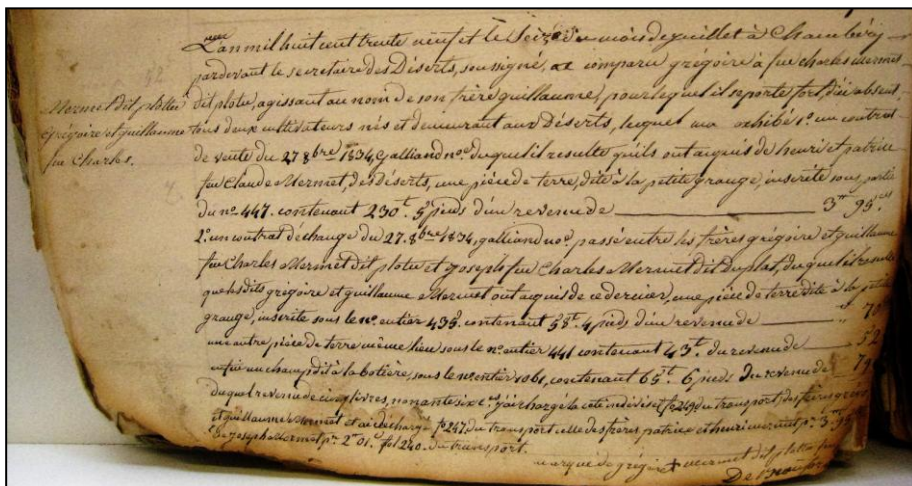 L'an mil huit cent trente neuf et le seize du mois de juillet à Chambéry
pardevant le secretaire des Déserts, soussigné, a comparu grégoire à feu charles mermet
dit plotu, agissant au nom de son frère guillaume, pour lequel il se porte fort, d'ici absent,
tous deux cultivateurs nés et demeurant aux Déserts, lequel m'a exhibé 1.º un contrat
de vente du 27 8bre 1834, Galliand no.e duquel il resulte qu'ils ont acquis de henri et patrice
feu Claude Mermet, des Déserts, une pièce de terre, dite à la petite grange, inscrite sous partie
du nº 447. contenant 230t. 5 pieds d'un revenu de 3 95
2.º un contrat d'échange du 27. 8bre 1834, galliand no.e passé entre les frères grégoire et guillaume
feu Charles Mermet dit plotu et joseph feu Charles Mermet dit Duplat, duquel il resulte
que les dits grégoire et guillaume Mermet ont acquis de ce dernier, une pièce de terre dite à la petite
grange, inscrite sous le nº entier 435. contenant 58t. 4 pieds d'un revenu de 70
une autre pièce de terre même lieu sous le nº entier 441 contenant 43t. du revenu de 52
enfin un champ dit à la botière, sous le nº entier 1061, contenant 65t. 6 pieds du revenu de 79
duquel revenu de cinq livres, nonante six c. j'ai chargé la cote indivise fº 249 du transport, des frères
et guillaume Mermet et ai déchargé fº 247 du transport celle des frères patrice et henri mermet pr. 3
joseph Mermet pr. 2 01 fol 240. du transport.
marque de grégoire + mermet dit plotu
Mermet dit plottu
Grégoire et guillaume
feu Charles.